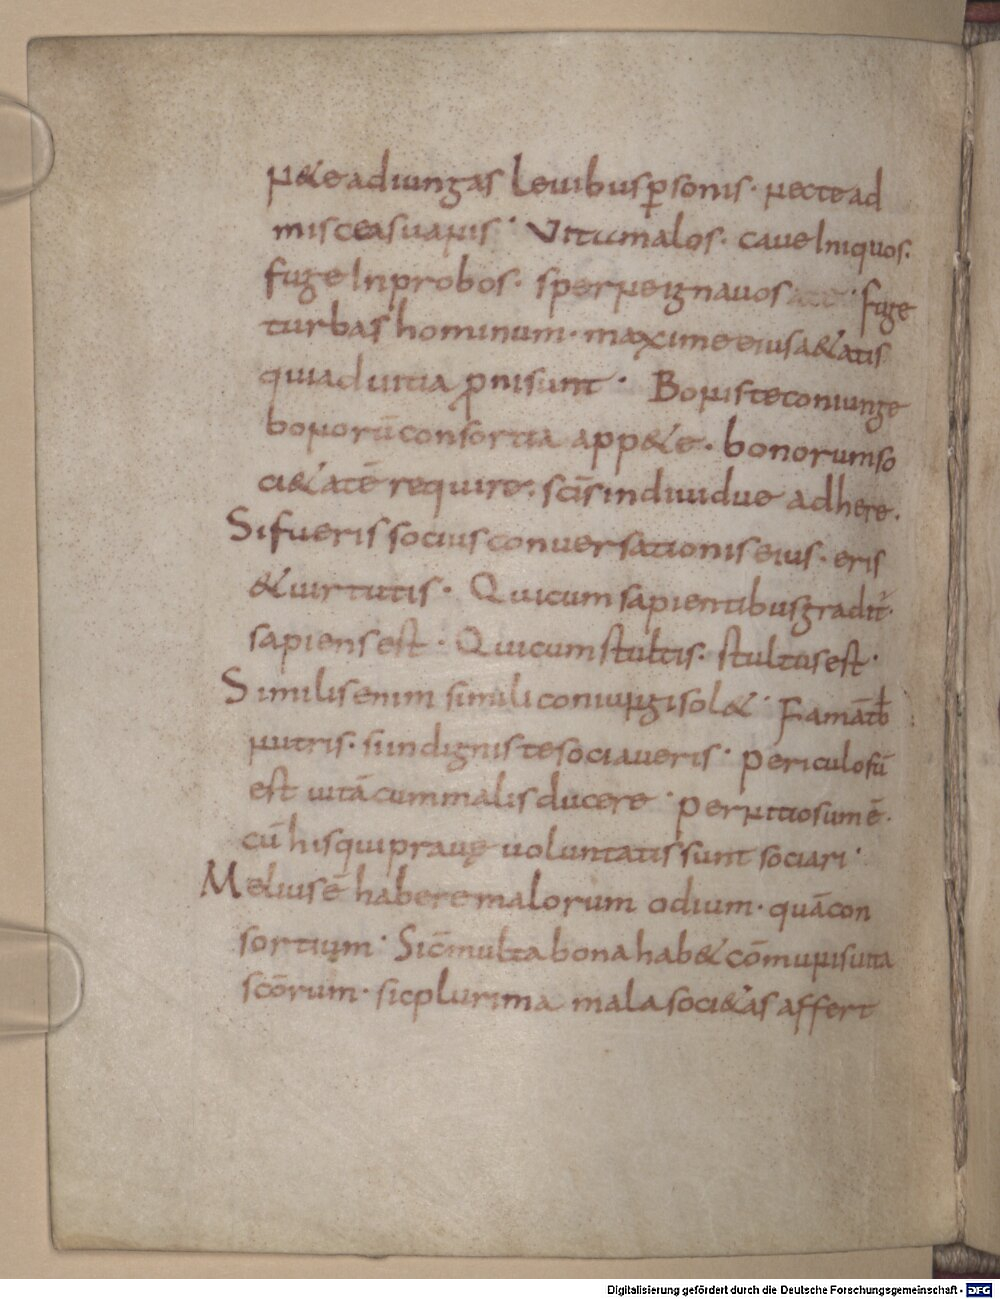 N&e adiungas leuibus p̱sonis· Necte ad
misceas uaNis· Vita malos· caue Iniquos·
fuge Inprobos· sperNe ignauos · fuge
turbas hominum· maxime eius a&atis
qui ad uitia p̱ni sunt· BoNis te coniunge
boNorū consortia app&e· bonorum so
ci&atē require· scīs indiuidue adhere·
Si fueris socius conuersationis eius· eris
& uirtutis· Qui cum sapientibus gradit̄·
sapiens est· Qui cum stultis· stultus est·
Similis enim simili coniuNgi sol&· Famā tb̄
Nutris· si indignis te sociaueris· periculosū
est uitā cum malis ducere· perNitiosum ē·
cū his qui prauę uoluntatis sunt sociari·
Melius ē habere malorum odium· quā con
sortium· Sic̄ multa bona hab& cōmuNis uita
scōrum· sic plurima mala soci&as affert
Digitalisierung gefördert durch die Deutsche Forschungsgemeinschaft - DFG